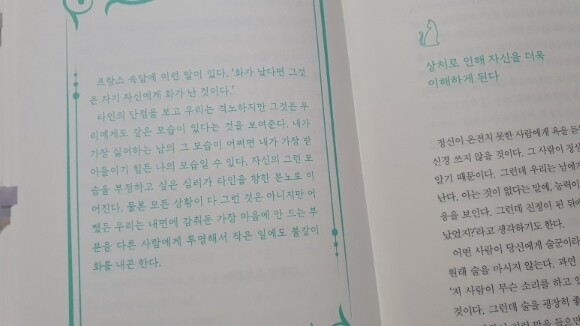 프랑스 속담에 이런 말이 있다. '화가 났다면 그것
은 자기 자신에게 화가 난 것이다.'
타인의 단점을 보고 우리는 격노하지만 그것은 우
리에게도 같은 모습이 있다는 것을 보여준다. 내가
가장 싫어하는 남의 그 모습이 어쩌면 내가 가장 받
아들이기 힘든 나의 모습일 수 있다. 자신의 그런 모
습을 부정하고 싶은 심리가 타인을 향한 분노로 이
어진다. 물론 모든 상황이 다 그런 것은 아니지만 어
쨌든 우리는 내면에 감춰둔 가장 마음에 안 드는 부
분을 다른 사람에게 투영해서 작은 일에도 불같이
화를 내곤 한다.
상처로 인해 자신을 더욱
이해하게 된다
정신이 온전치 못한 사람에게 욕을 듣
신경 쓰지 않을 것이다. 그 사람이 정상
알기 때문이다. 그런데 우리는 남에게
난다. 아는 것이 없다는 말에, 능력이
응을 보인다. 그런데 진정이 된 뒤에
났었지?'라고 생각하기도 한다.
어떤 사람이 당신에게 술꾼이라
원래 술을 마시지 않는다. 과연
'저 사람이 무슨 소리를 하고 있
것이다. 그런데 술을 굉장히 좋